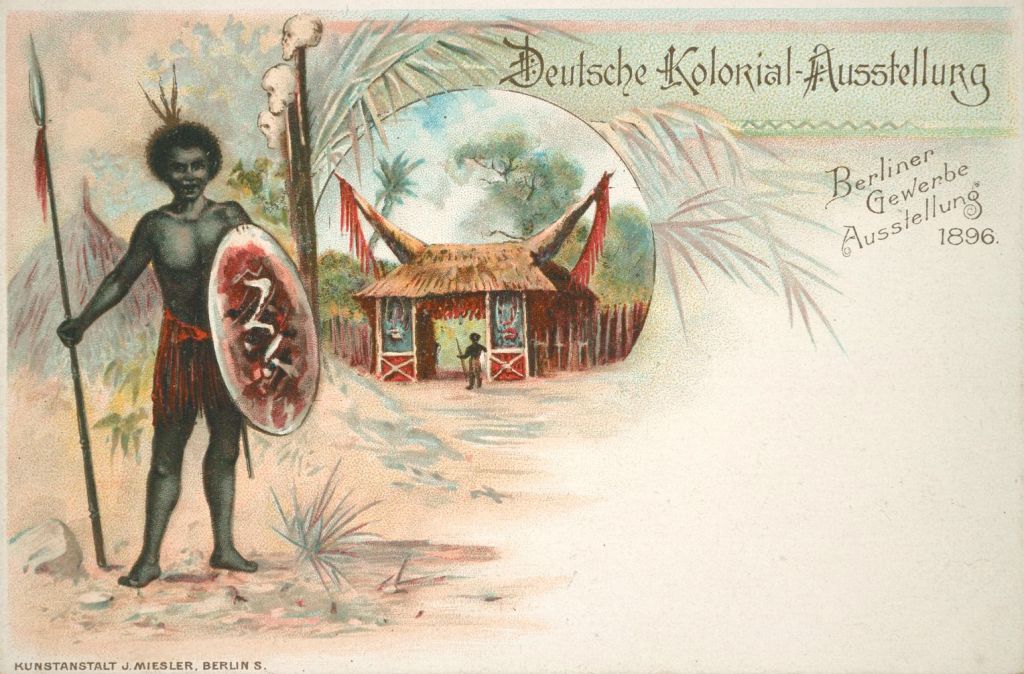 Deutsche Kolonial-Ausstellung
Berliner
Gewerbe
Ausstellung
1896.
KUNSTANSTALT J. MIESLER, BERLIN S.